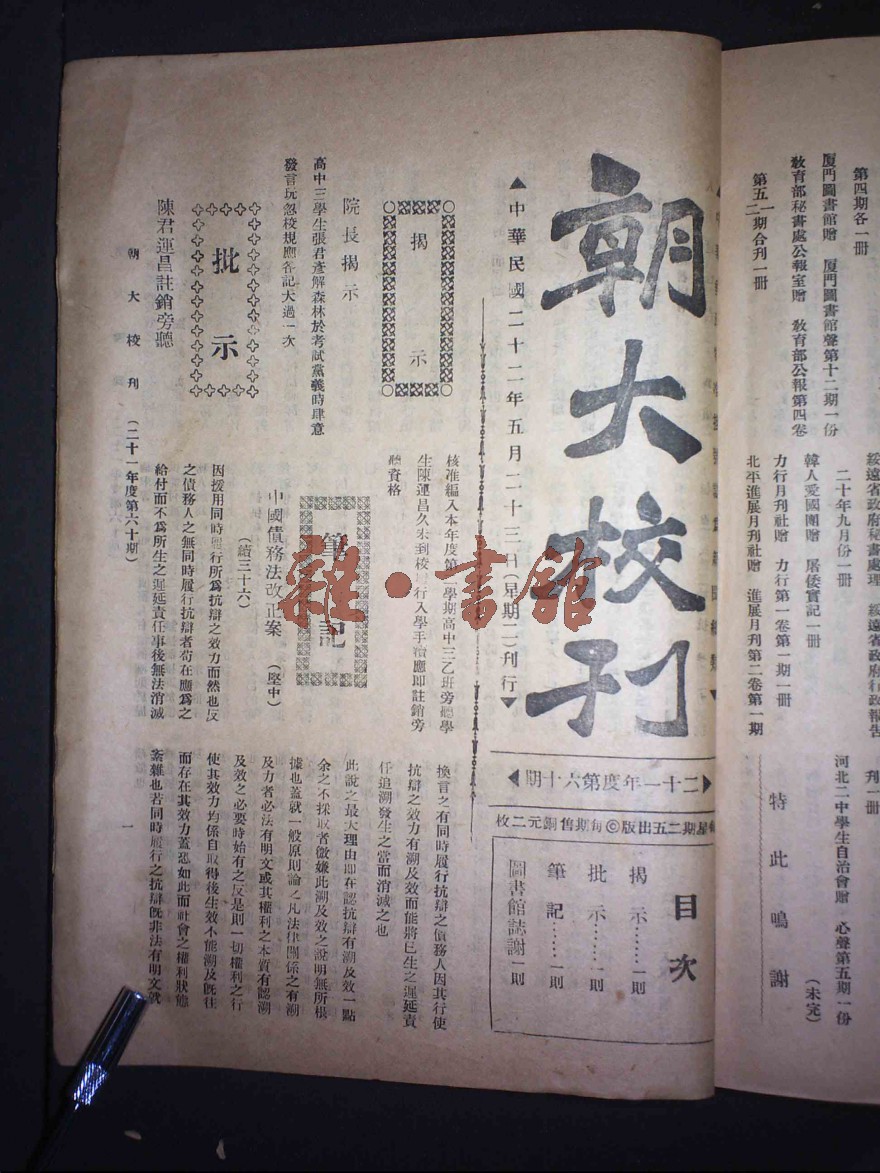 第四期各一冊
廈門圖書館贈　廈門圖書館聲第十二期一份
教育部秘書處公報室贈　教育部公報第四卷
第五一二期合刊一冊
綏遠省政府秘書處理　綏遠省政府行政報告
二十年九月份一冊
韓人愛國團贈　屠倭實記一冊
力行月刊社贈　力行第一卷第一期一冊
北平進展月刊社贈　進展月刊第二卷第一期
刊一冊
河北二中學生自治會贈　心聲第五期一份
（未完）
特此鳴謝
朝大校刊
▲中華民國二十二年五月二十三日（星期二）刊行▼
二十一年度第六十期
星期二五出版◎每期售銅元二枚
目次
揭示……一則
批示……一則
筆記……一則
圖書館誌謝一則
揭示
院長揭示
高中三學生張君彥解森林於考試黨義時肆意
發言玩忽校規應各記大過一次
批示
陳君運昌註銷旁聽
核准編入本年度第二學期高中三乙班旁聽學
生陳運昌久未到校履行入學手續應即註銷旁
聽資格
筆記
中國債務法改正案　（堅中）
（續三十六）
因援用同時履行所爲抗辯之效力而然也反
之債務人之無同時履行抗辯者苟在應爲之
給付而不爲所生之遲延責任事後無法消滅
換言之有同時履行抗辯之債務人因其行使
抗辯之效力有溯及效而能將已生之遲延責
任追溯發生之當而消滅之也
此說之最大理由即在認抗辯有溯及效一點
余之不採取者微嫌此溯及效之說明無所根
據也蓋就一般原則論之凡法律關係之有溯
及力者必法有明文或其權利之本質有認溯
及效之必要時始有之反是則一切權利之行
使其效力均係自取得後生效不能溯及旣往
而存在其效力蓋恐如此而社會之權利狀態
紊雜也若同時履行之抗辯旣非法有明文就
朝大校刊　（二十一年度第六十期）
一
雜·書館